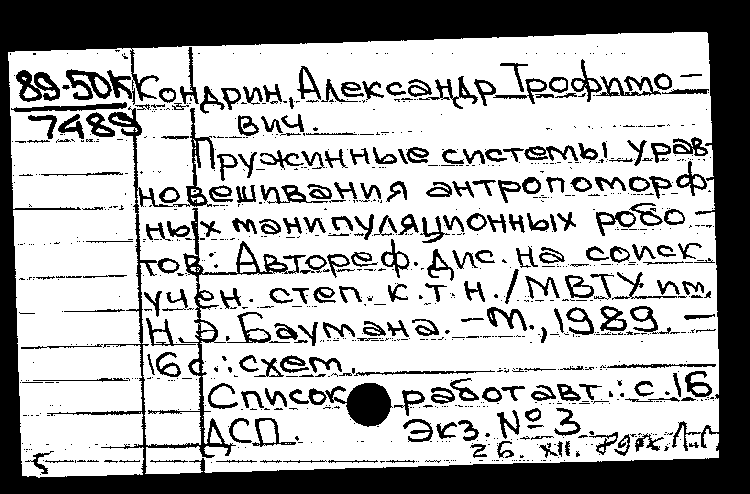 89-50К Кондрин, Александр Трофимо-
7489 вич.
Пружинные системы урав-
новешивания антропоморф-
ных манипуляционных робо-
тов: Автореф. дис. на соиск.
учен. степ. к.т.н./МВТУ им.
Н.Э. Баумана. - М., 1989. -
16 с.: схем.
Список работ авт.: с. 16.
ДСП. Экз. № 3.
26. XII.